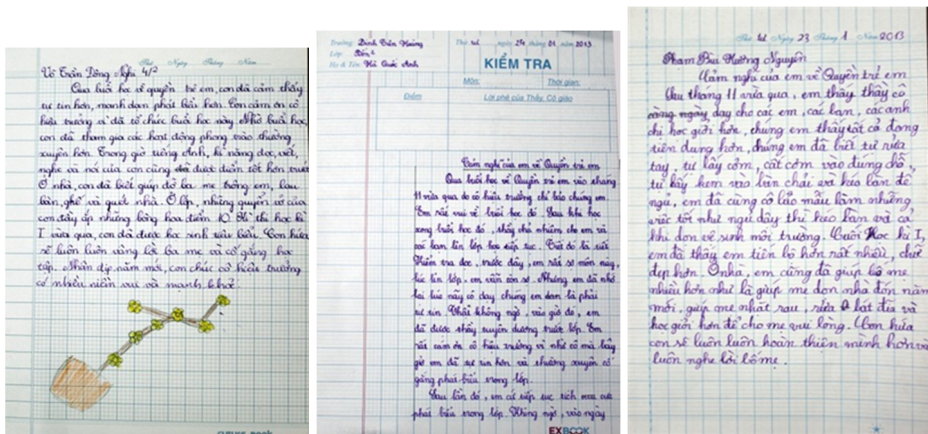 Thứ Ngày Tháng Năm
Võ Trần Đông Nghi 4/2
Qua buổi học về quyền trẻ em, con đã cảm thấy
tự tin hơn, mạnh dạn phát biểu hơn. Con cảm ơn cô
hiệu trưởng vì đã tổ chức buổi học này. Nhờ buổi học,
con đã tham gia các hoạt động phong trào thường
xuyên hơn. Trong giờ tiếng Anh, kĩ năng đọc, viết,
nghe và nói của con cũng được tốt hơn trước
Ở nhà, con đã biết giúp đỡ ba mẹ trông em, lau
bàn, ghế và quét nhà. Ở lớp, những quyển vở của
con đầy ắp những bông hoa điểm 10. Kì thi học kì
I vừa qua, con đã được học sinh tiêu biểu. Con hứa
sẽ luôn luôn vâng lời ba mẹ và cố gắng học
tập. Nhân dịp năm mới, con chúc cô hiệu trưởng
có nhiều niềm vui và mạnh khỏe.
Trường: Đinh Tiên Hoàng
Thứ tư, ngày tháng 01 năm 2013
Lớp:
Họ & Tên: Quốc Anh
KIỂM TRA
Môn: Thời gian:
Điểm Lời phê của Thầy, Cô giáo
Cảm nghĩ của em về Quyền trẻ em
Qua buổi học về Quyền trẻ em vào tháng
11 vừa qua do cô hiệu trưởng chỉ bảo chúng em.
Em rất vui về buổi học đó. Sau khi học
xong buổi học đó, thầy chủ nhiệm cho em và
các bạn lên lớp học tiếp tục. Tiết đó là tiết
Kiểm tra đọc, trước đây, em rất sợ môn này,
lúc lên lớp, em vẫn còn sợ. Nhưng em đã nhớ
lại lúc nãy cô dạy chúng em là phải
tự tin. Thật không ngờ, vào giờ đó, em
đã được thầy tuyên dương trước lớp. Em
rất cảm ơn cô hiệu trưởng vì nhờ cô mà bây
giờ em đã tự tin hơn và thường xuyên cố
gắng phát biểu trong lớp.
Sau lần đó, em cứ tiếp tục tích cực
phát biểu trong lớp. Không ngờ, vào ngày
EXBOOK
Thứ tư Ngày 23 Tháng 1 Năm 2013
Phạm Bùi Hương Nguyên
Cảm nghĩ của em về Quyền trẻ em
Sau tháng 11 vừa qua, em thấy thầy cô
càng ngày dạy cho các em, các bạn, các anh
chị học giỏi hơn, chúng em thấy tất cả đang
tiến dung hơn, chúng em đã biết tự rửa
tay, tự lấy cơm, cất cơm vào đúng chỗ,
tự lấy kem vào bàn chải và kéo bàn để
ngủ, em đã cùng cô lao mẫu làm những
việc tốt như ngủ dậy thì kéo bàn và cả
khi dọn vệ sinh môi trường. Cuối Học kì I,
em đã thấy em tiến bộ hơn rất nhiều, chữ
đẹp hơn. Ở nhà, em cũng đã giúp bố mẹ
nhiều hơn như là giúp mẹ dọn nhà đón năm
mới, giúp mẹ nhặt rau, rửa bát đĩa và
học giỏi hơn để cho mẹ vui lòng. Con hứa
con sẽ luôn luôn hoàn thiện mình hơn và
luôn nghe lời bố mẹ.